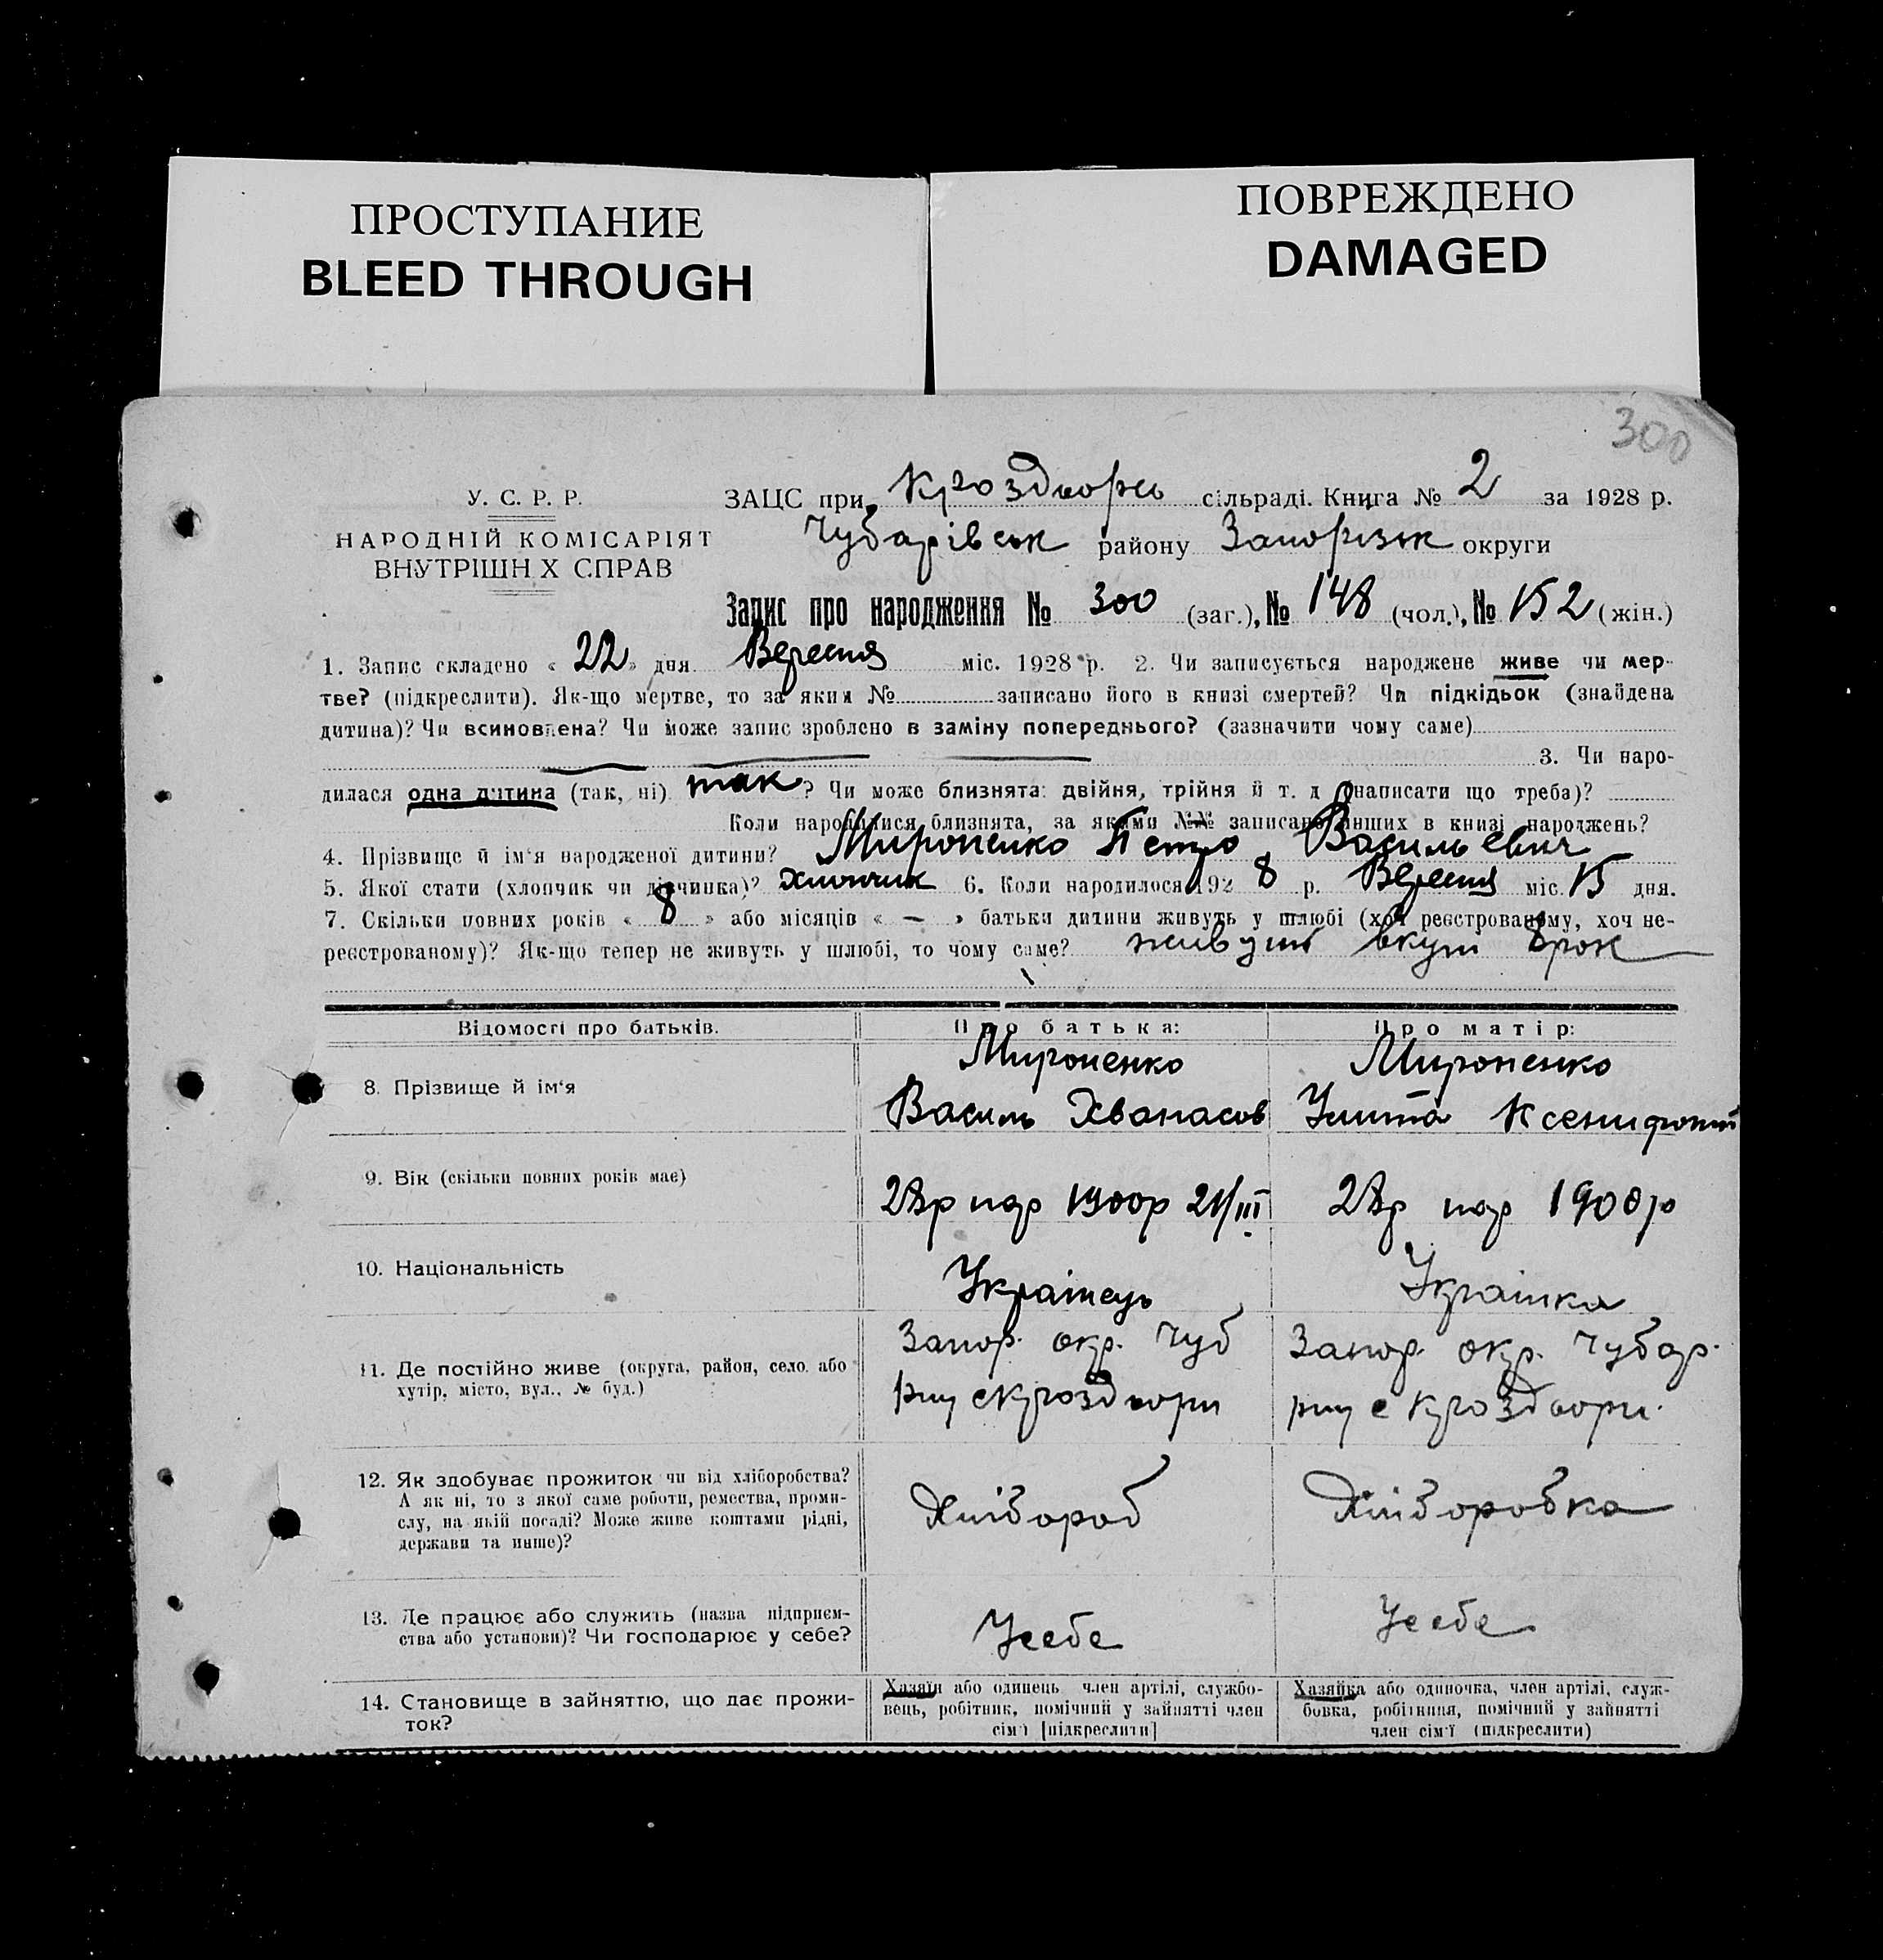 ПРОСТУПАНИЕ
BLEED THROUGH
ПОВРЕЖДЕНО
DAMAGED
300
У. С. Р. Р.
НАРОДНІЙ КОМІСАРІЯТ
ВНУТРІШН Х СПРАВ
ЗАЦС при сільраді. Книга № 2 за 1928 р.
Чубарівськ району Запорізьк округи
Запис про народження № 300 (заг.), № 148 (чол.), № 152 (жін.)
1. Запис складено « 22 » дня Вересня міс. 1928 р. 2. Чи записується народжене живе чи мер-
тве? (підкреслити). Як-що мертве, то за яким № записано його в книзі смертей? Чи підкідьок (знайдена
дитина)? Чи всиновлена? Чи може запис зроблено в заміну попереднього? (зазначити чому саме)
3. Чи наро-
дилася одна дитина (так, ні) так? Чи може близнята: двійня, трійня й т. д (написати що треба)?
Коли народилися близнята, за якими №№ записано инших в книзі народжень?
4. Прізвище й ім'я народженої дитини? Мироненко Петро Васильевич
5. Якої стати (хлопчик чи дівчинка)? Хлопчик 6. Коли народилося 192 8 р. Вересня міс. 15 дня.
7. Скільки повних років « 8 » або місяців « — » батьки дитини живуть у шлюбі (хоч реєстрованому, хоч не-
реєстрованому)? Як-що тепер не живуть у шлюбі, то чому саме? живуть вкупі 8 рок
Відомості про батьків. Про батька: Про матір:
8. Прізвище й ім'я
Мироненко
Василь Хванасов
Мироненко
Улита
9. Вік (скільки повних років має)
28р нар 1900р 21/III
28р нар 1900р
10. Національність
Українець
Українка
11. Де постійно живе (округа, район, село або
хутір, місто, вул., № буд.)
Запор. окр. Чуб
Запор. окр. Чубар.
12. Як здобуває прожиток чи від хліборобства?
А як ні, то з якої саме роботи, ремества, проми-
слу, на якій посаді? Може живе коштами рідні,
держави та инше)?
Хлібороб
Хліборобка
13. Де працює або служить (назва підприєм-
ства або установи)? Чи господарює у себе?
Усебе
Усебе
14. Становище в зайняттю, що дає прожи-
ток?
Хазяїн або одинець член артілі, службо-
вець, робітник, помічний у зайнятті член
сім'ї [підкреслити]
Хазяйка або одиночка, член артілі, служ-
бовка, робітниця, помічний у зайнятті
член сім'ї (підкреслити)